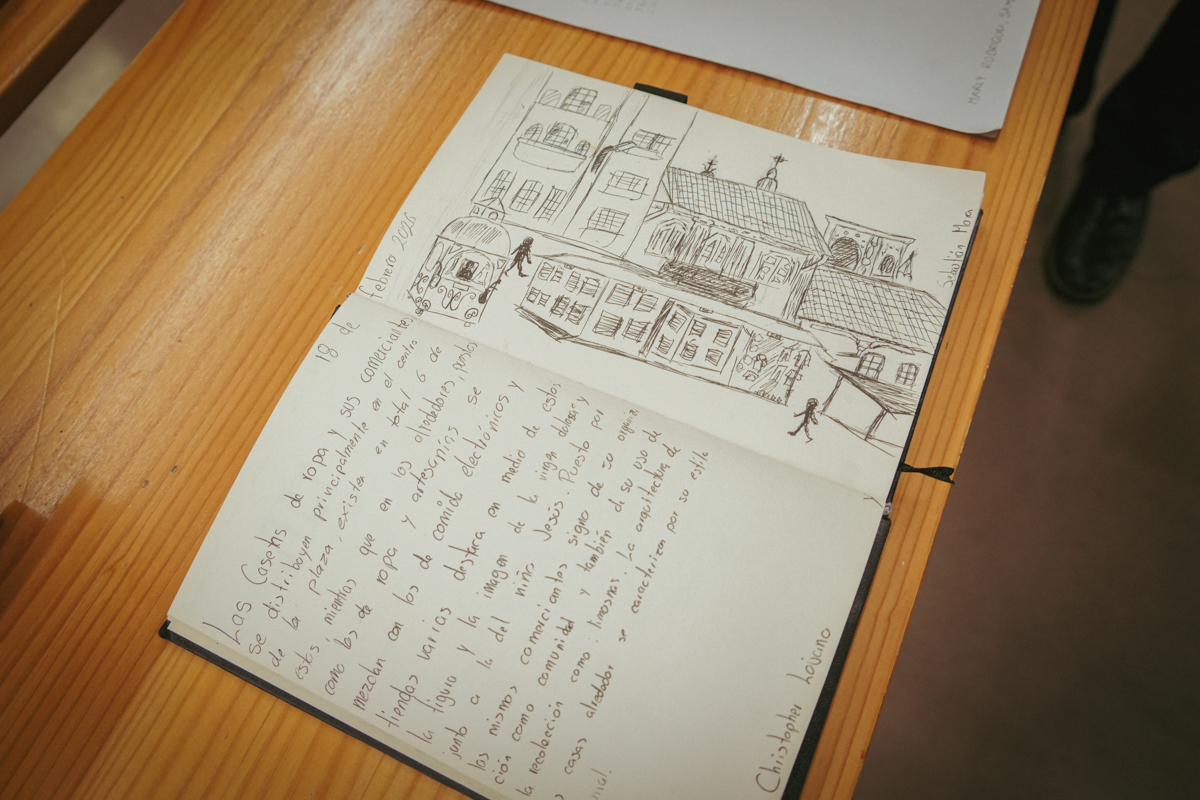 18 de febrero 2026
Las Casetas de ropa y sus comerciantes
se distribuyen principalmente en el centro
de la plaza, existen en total 6 de
estos mientas que en los alrededores puestos
como los de ropa y artesanías se
mezclan con los de comida electrónicos y
tiendas varias destaca en medio de estos
la figura y la imagen de la virgen dolorosa y
junto a la del niño Jesus. Puesto por
los mismos comerciantes signo de su organiza-
ción como comunidad y también de su uso de
la recolección como: limosnas. La arquitectura de
casas alrededor se caracterizan por su estilo
Christopher
Sebastián Mora
MARLY RODRIGUEZ